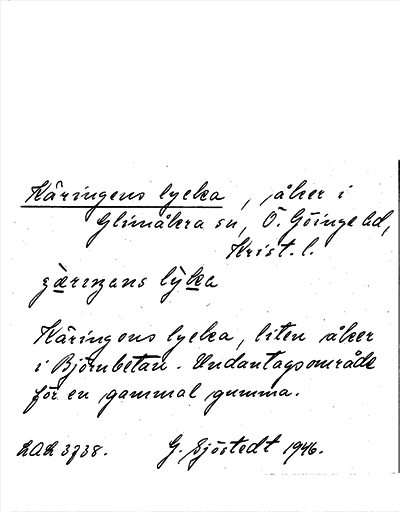 Käringens lycka, åker i
Glimåkra sn, Ö. Göinge hd,
Krist. l.
Käringens lycka, liten åker
i Björnbetan. Undantagsområde
för en gammal gumma.
G. Sjöstedt 1946.